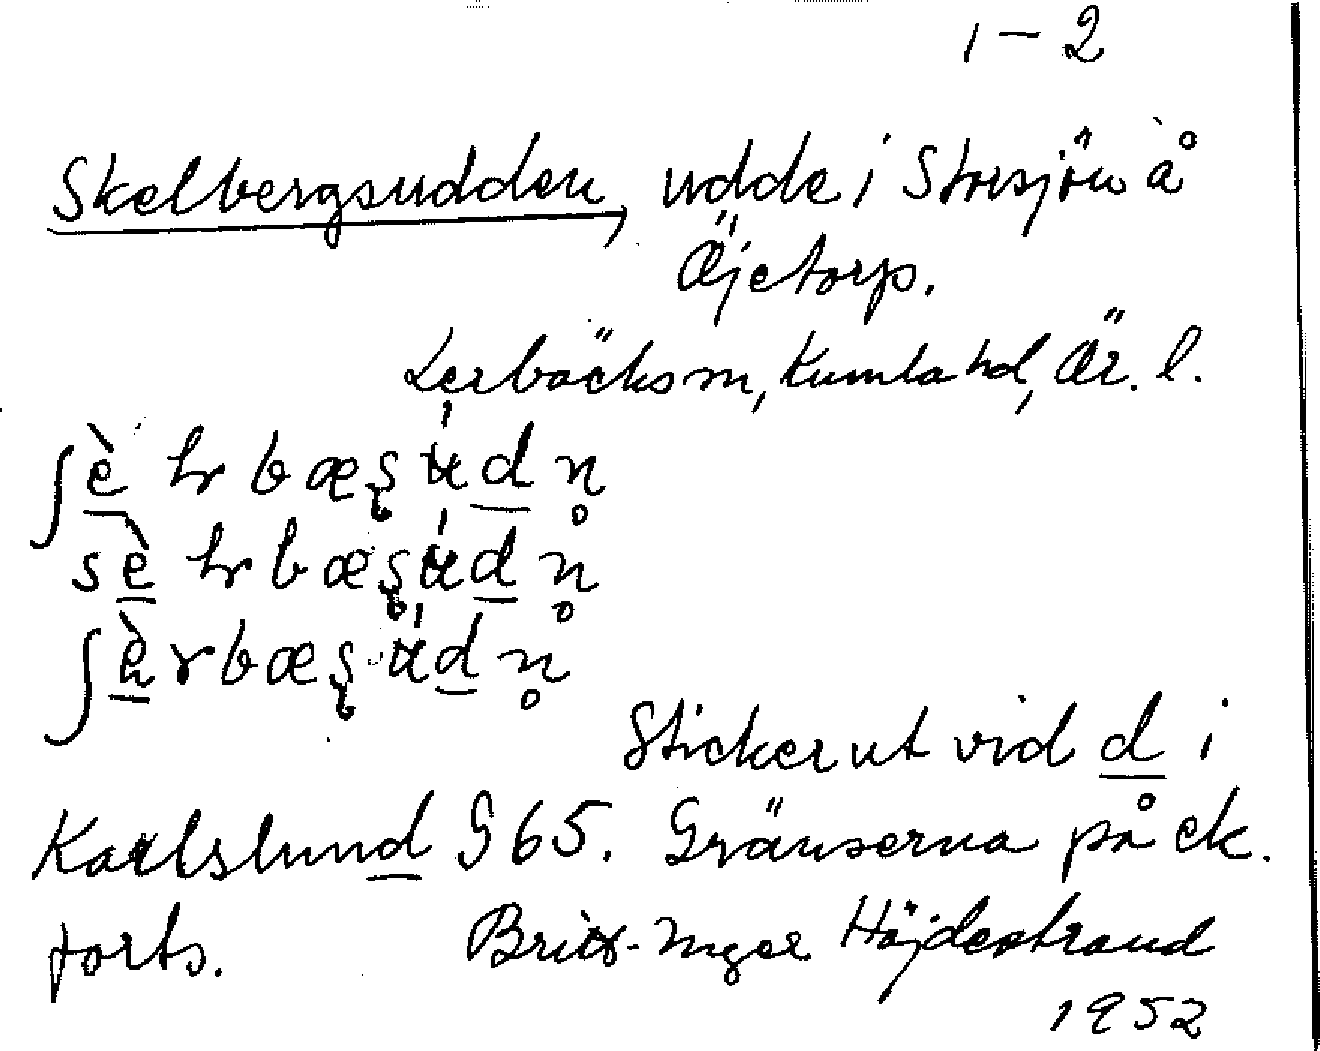 1 – 2
Skelbergsudden, udde i Storsjön å
Öjetorp.
Lerbäcks sn, Kumla hd, Ör. l.
Sticker ut vid d i
Karlslund G 65. Gränserna på ek.
forts. Britt-Inger Höjdestrand
1952